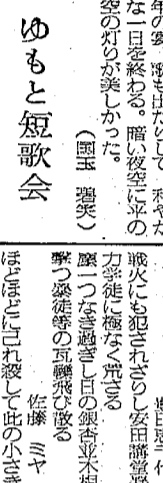 な一日を終わる。暗い夜空に平の
空の灯りが美しかった。
（国玉 碧笑）
ゆもと短歌会
戦火にも犯されざりし安田講堂
力学徒に極なく荒さる
塵一つなき過ぎし日の銀杏並木
撃つ暴徒等の瓦礫飛び散る
佐藤 ミヤ
ほどほどに己れ殺して此の小さき